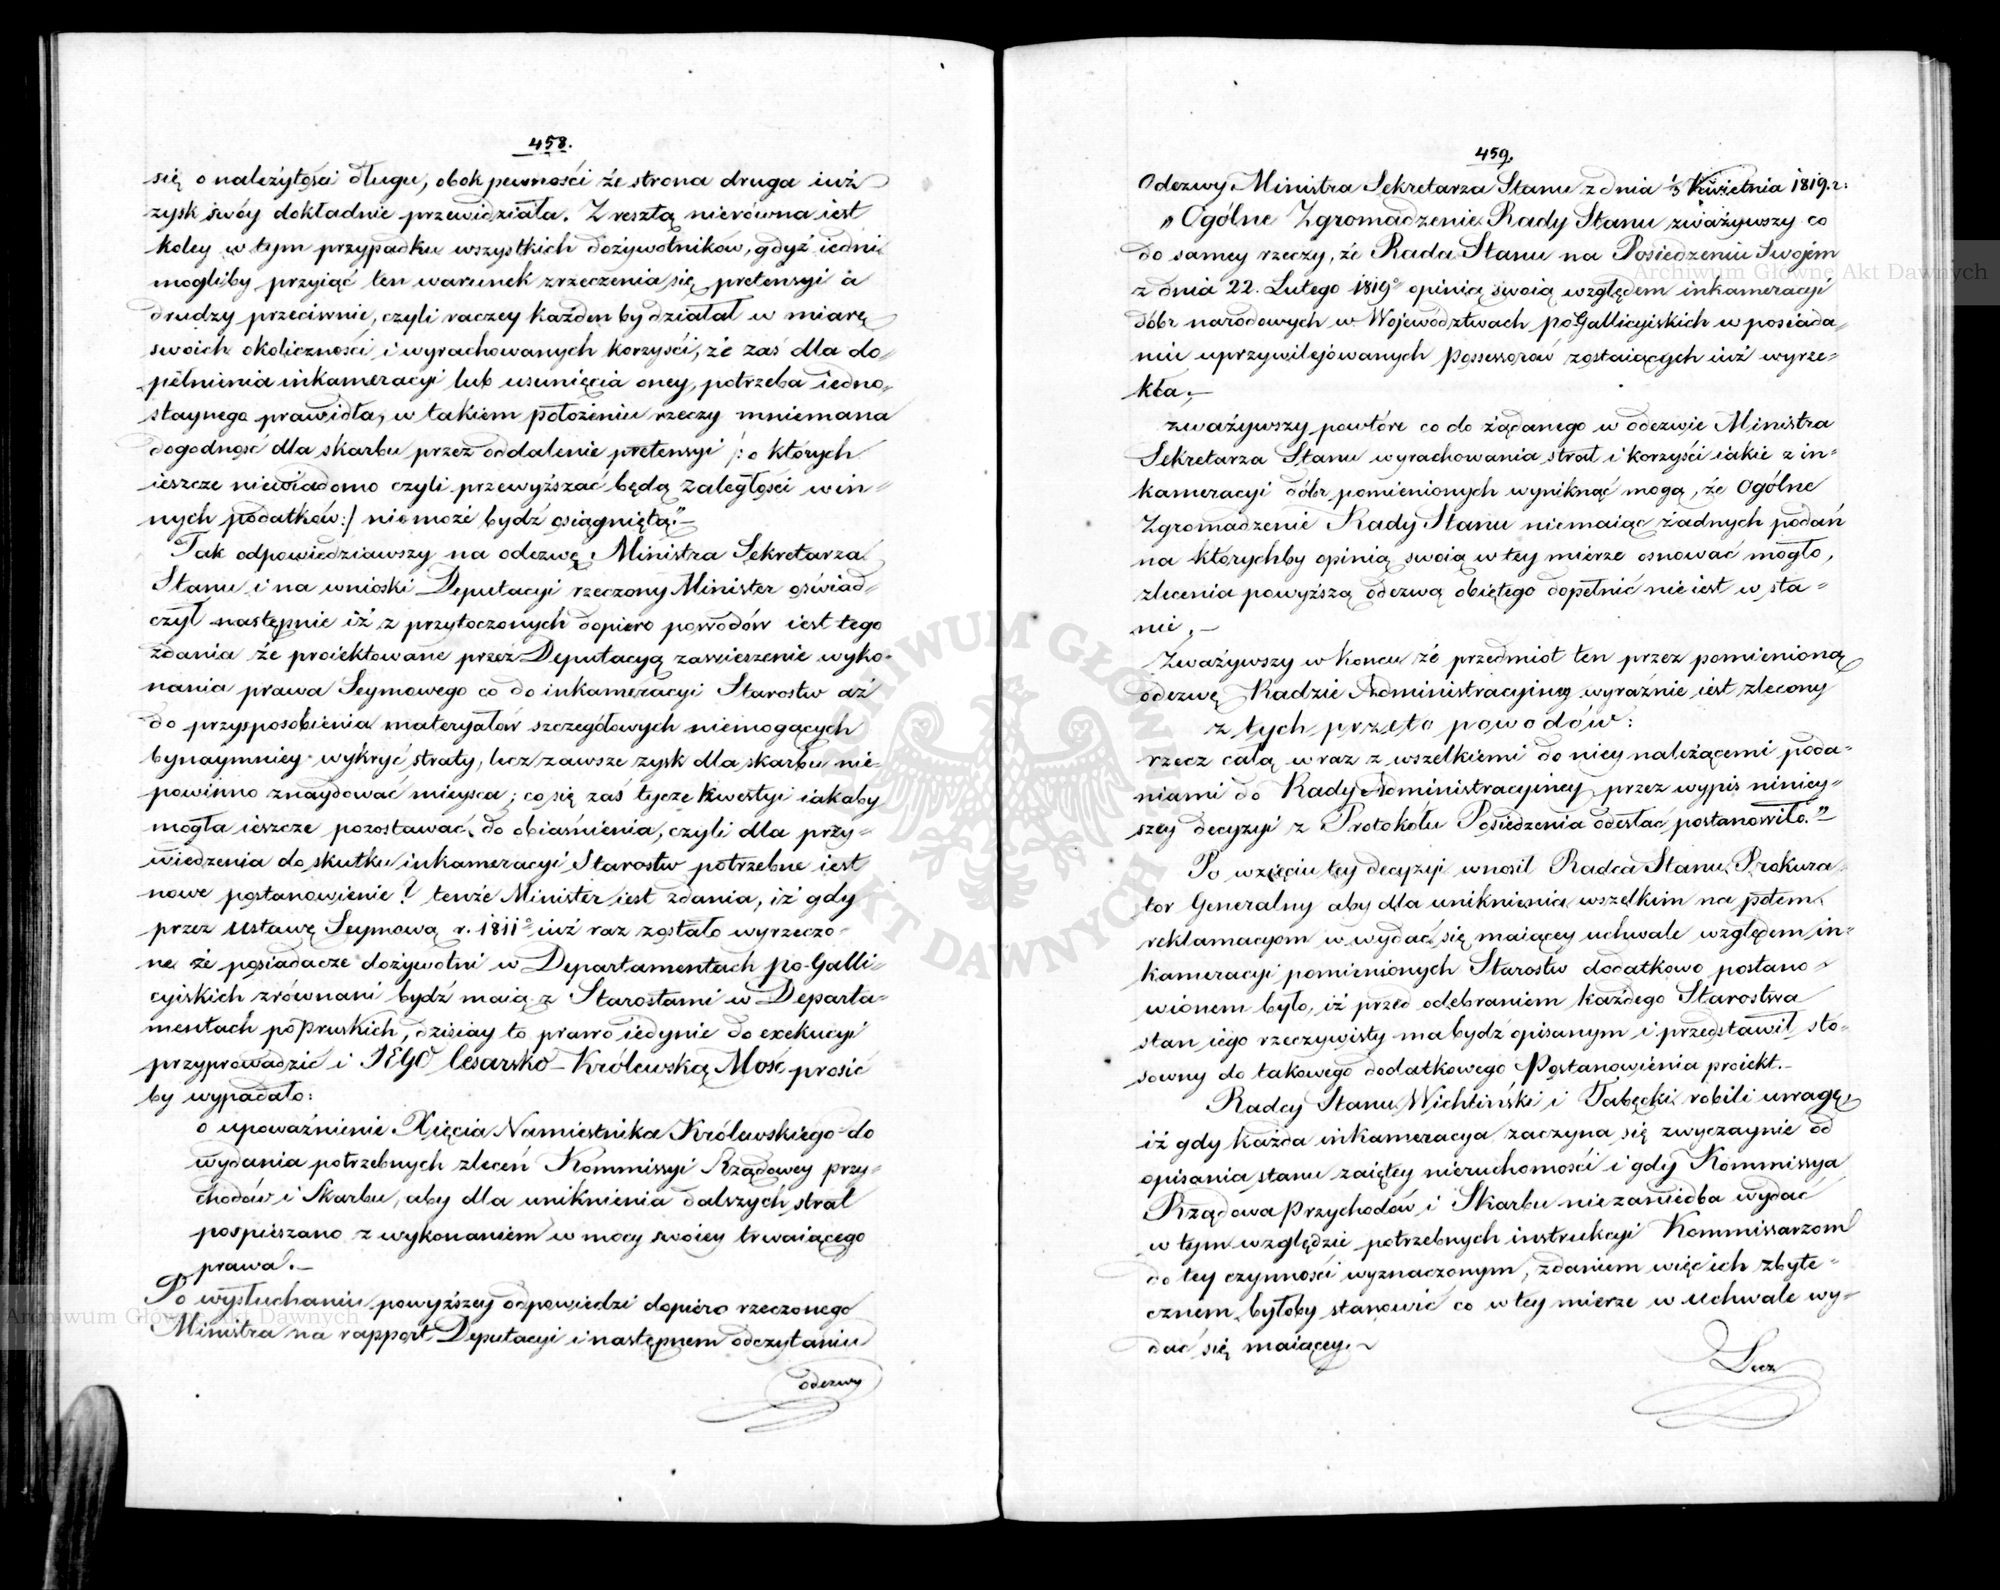 458.
się o należytości długu, obok pewności że strona druga iuż
zysk swóy dokładnie przewidziała. Z resztą nierówna iest
koley w tym przypadku wszystkich dożywotników, gdyż iedni
mogliby przyiąć ten warunek zrzeczenia się pretensyi à
drudzy przeciwnie, czyli raczey każden by działał w miarę
swoich okoliczności i wyrachowanych korzyści, że zaś dla do„
pełnienia inkameracyi lub usunięcia oney, potrzeba iedno„
staynego prawidła, w takiem położeniu rzeczy mniemana
dogodność dla skarbu przez oddalenie pretensyi /: o których
ieszcze niewiadomo czyli przewyższać będą zaległości win„
nych podatków :/ niemoże bydź osiągniętą."—
Tak odpowiedziawszy na odezwę Ministra Sekretarza
Stanu i na wnioski Deputacyi rzeczony Minister oświad„
czył następnie iż z przytoczonych dopiero powodów iest tego
zdania że proiektowane przez Deputacyą zawieszenie wyko„
nania prawa Seymowego co do inkameracyi Starostw aż
do przysposobienia materyałów szczegółowych niemogących
bynaymniey wykryć straty, lecz zawsze zysk dla skarbu nie„
powinno znaydować mieysca; co się zaś tycze kwestyi iakaby
mogła ieszcze pozostawać do obiaśnienia, czyli dla przy„
wiedzenia do skutku inkameracyi Starostw potrzebne iest
nowe postanowienie? tenże Minister iest zdania, iż gdy
przez Ustawę Seymową r. 1811º iuż raz zostało wyrzeczo„
ne że posiadacze dożywotni w Departamentach po-Galli„
cyiskich zrównani bydź maią z Starostami w Departa„
mentach po Pruskich, dzisiay to prawo iedynie do exekucyi
przyprowadzić i JEGO Cesarsko-Królewską Mość prosić
by wypadało:
o upoważnienie Xięcia Namiestnika Królewskiego do
wydania potrzebnych zleceń Kommissyi Rządowey przy„
chodów i Skarbu, aby dla uniknienia dalszych strat
pospieszano z wykonaniem w mocy swoiey trwaiącego
prawa.—
Po wysłuchaniu powyższey odpowiedzi dopiero rzeczonego
Ministra na rapport Deputacyi i następnem odczytaniu
odezwy
459.
Odezwy Ministra Sekretarza Stanu z dnia Kwietnia 1819. r:
„Ogólne Zgromadzenie Rady Stanu zważywszy co
do samey rzeczy, że Rada Stanu na Posiedzeniu Swojem
z dnia 22. Lutego 1819º opinią swoią względem inkameracyi
dóbr narodowych w Województwach po Gallicyiskich w posiada„
niu uprzywilejowanych possessorów zostaiących iuż wyrze„
kła.—
zważywszy powtóre co do żądanego w odezwie Ministra
Sekretarza Stanu wyrachowania strat i korzyści iakie z in„
kameracyi dóbr pomienionych wyniknąć mogą, że Ogólne
Zgromadzenie Rady Stanu niemaiąc żadnych podań
na którychby opinią swoią w tey mierze osnować mogło,
zlecenia powyższą odezwą obiętego dopełnić nie iest w sta„
nie.—
Zważywszy w końcu że przedmiot ten przez pomienioną
odezwę Radzie Administracyiney wyraźnie iest zlecony
z tych przeto powodów:
rzecz całą wraz z wszelkiemi do niey należącemi poda„
niami do Rady Administracyiney przez wypis niniey„
szey decyzyi z Protokółu Posiedzenia odesłać postanowiło."—
Po wzięciu tey decyzyi wnosił Radca Stanu Prokura„
tor Generalny aby dla uniknienia wszelkim na potem
reklamacyom w wydać się maiącey uchwale względem in„
kameracyi pomienionych Starostw dodatkowo postano„
wionem było, iż przed odebraniem każdego Starostwa
stan iego rzeczywisty ma bydź opisanym i przedstawił sto„
sowny do takowego dodatkowego Postanowienia proiekt.—
Radcy Stanu Wichliński i Tabęcki robili uwagę,
iż gdy każda inkameracya zaczyna się zwyczaynie od
opisania stanu zaiętey nieruchomości i gdy Kommissya
Rządowa Przychodów i Skarbu niezaniedba wydać
w tym względzie potrzebnych instrukcyi Kommissarzom
do tey czynności wyznaczonym, zdaniem więc ich zbyte„
cznem byłoby stanowić co w tey mierze w uchwale wy„
dać się maiącey.—
Lecz
Archiwum Główne Akt Dawnych
Archiwum Główne Akt Dawnych
ARCHIWUM GŁÓWNE AKT DAWNYCH